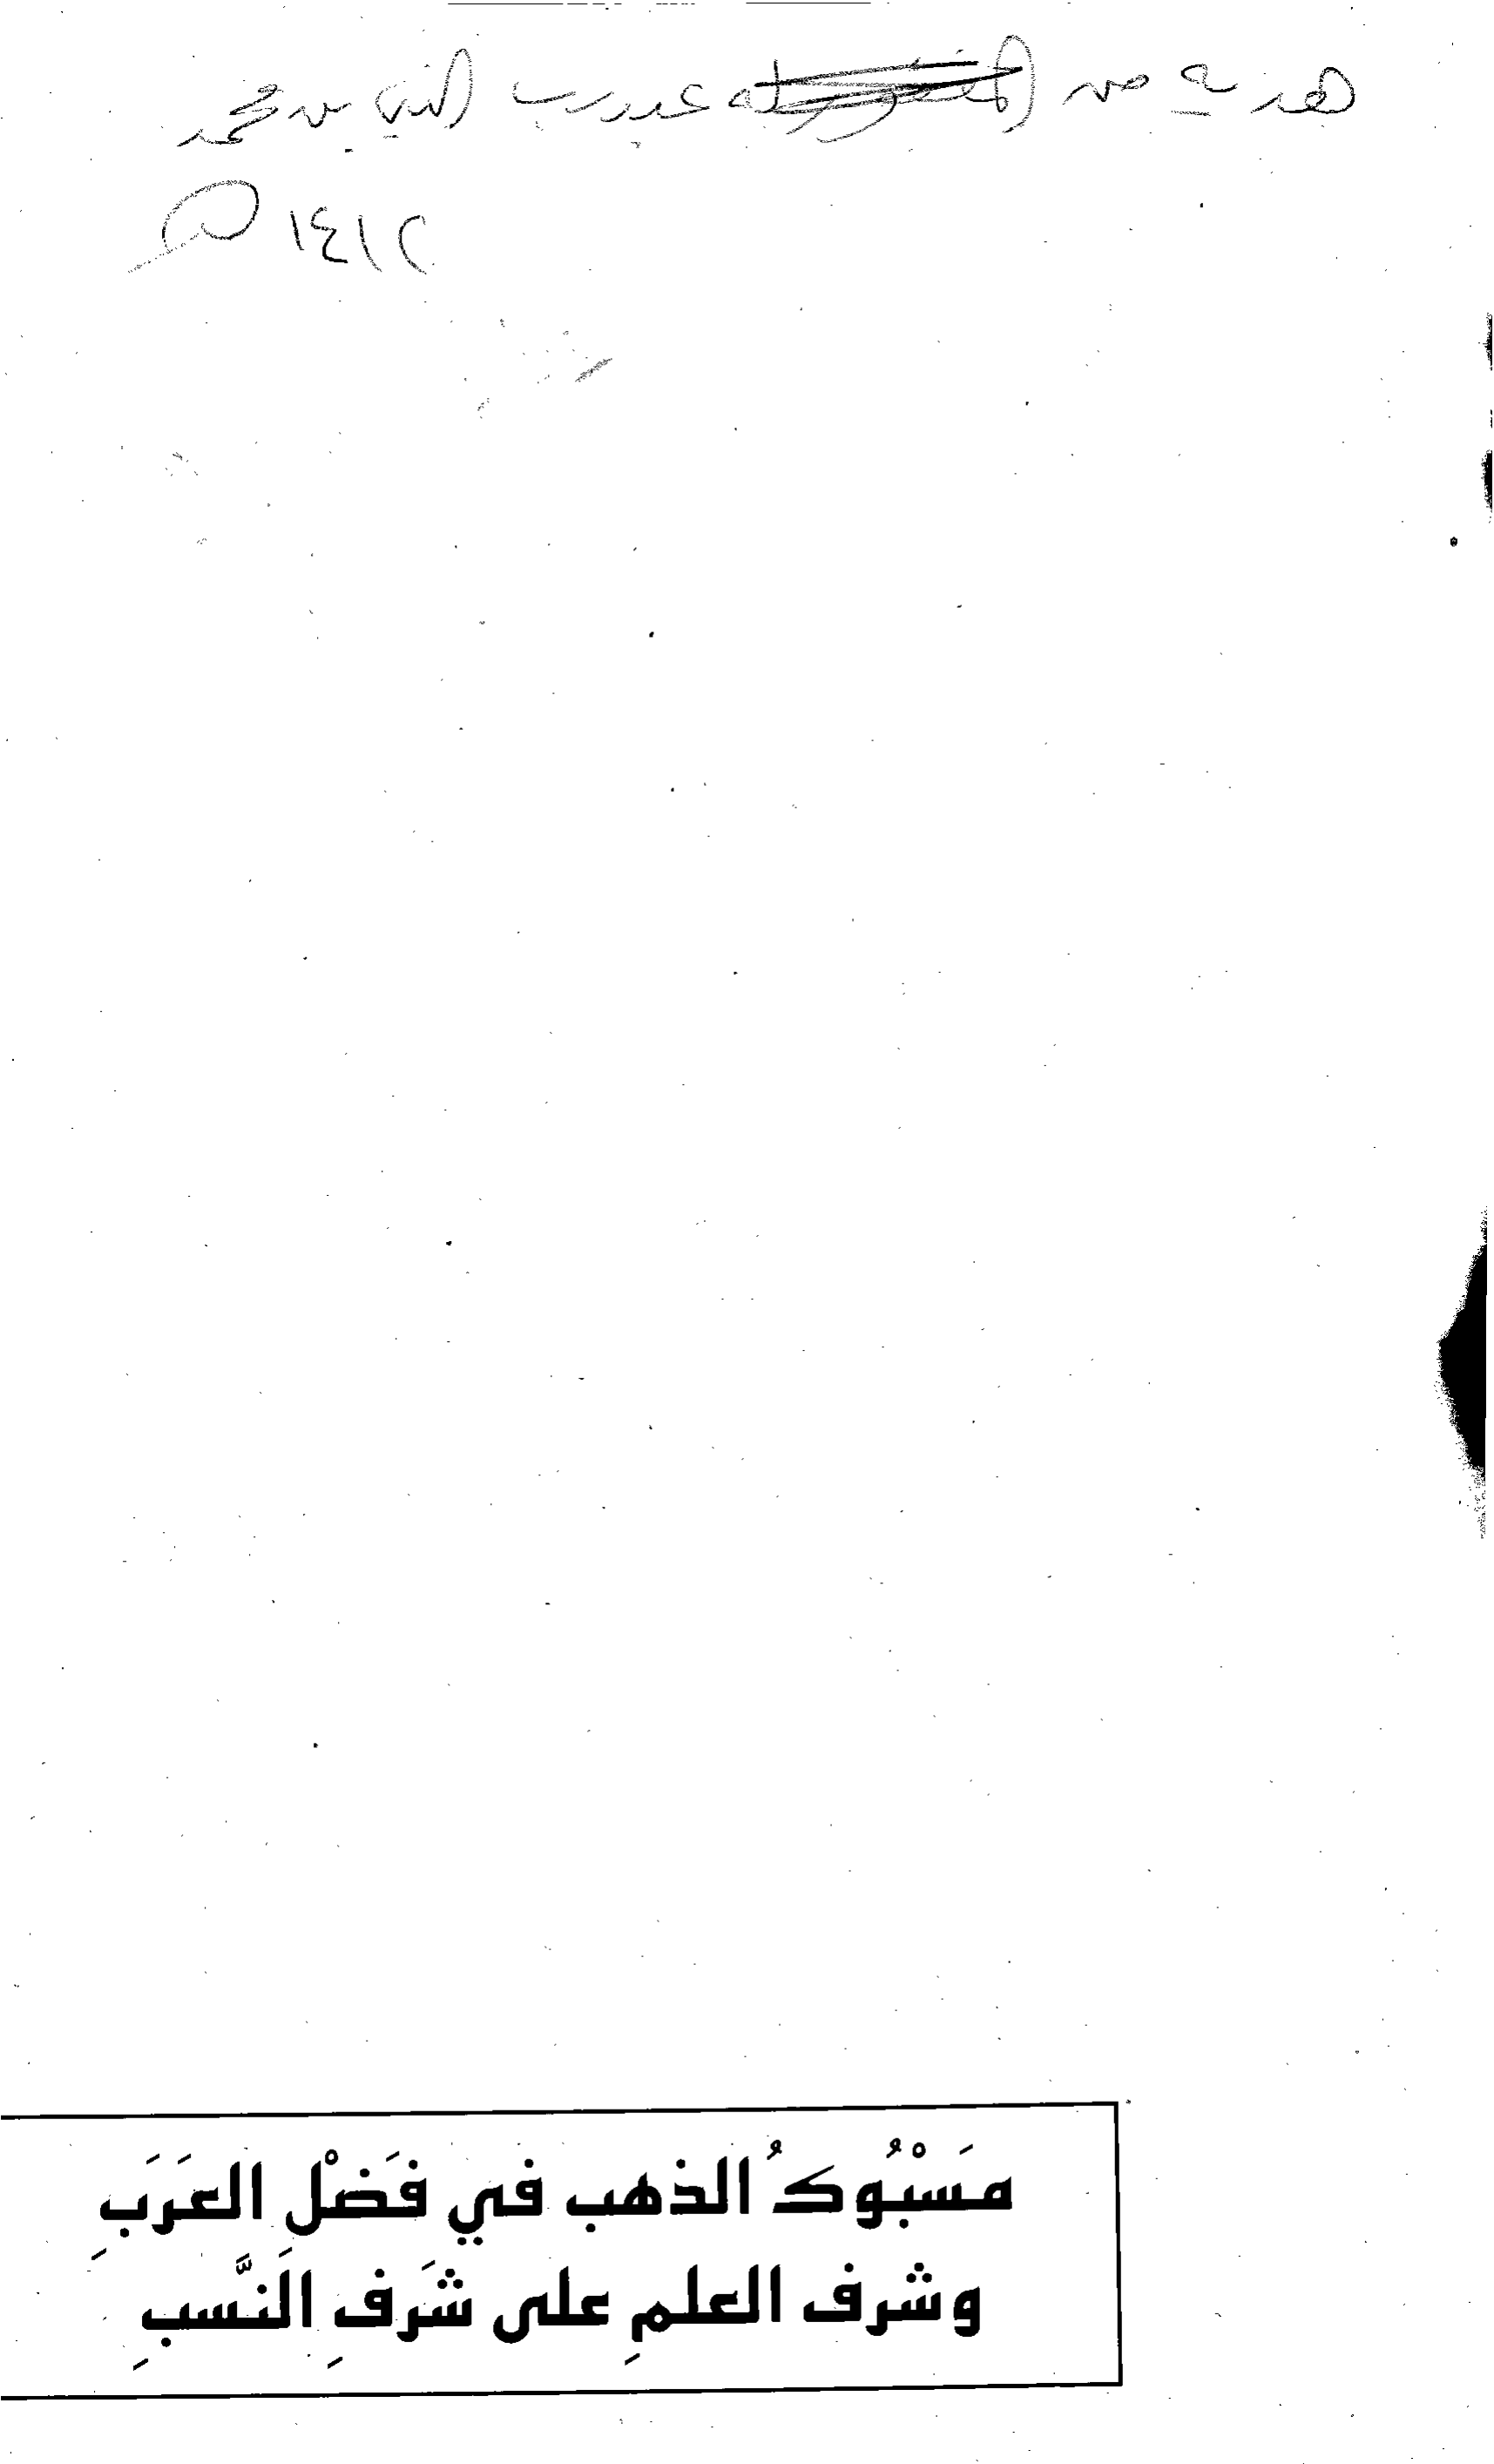 هدية من عبد رب النبي بن محمد
١٤١٢ هـ
مَسْبُوكُ الذهب في فَضْلِ العَرَبِ
وشرف العلمِ على شَرَفِ النَّسبِ